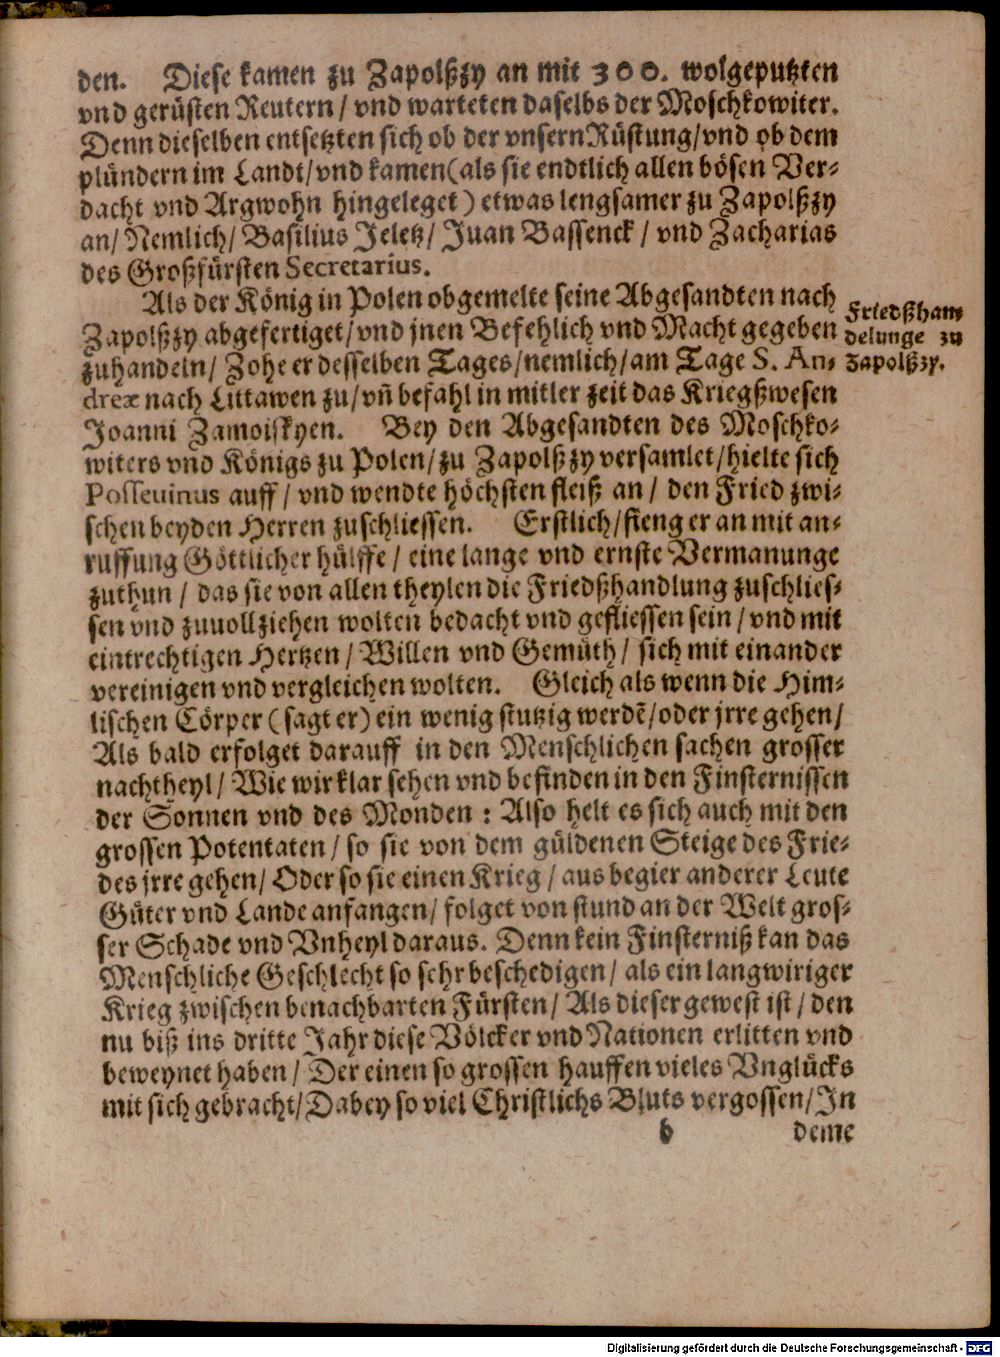 den. Diese kamen zu Zapolßzy an mit 300. wolgeputzten
vnd gerüsten Reutern/ vnd warteten daselbs der Moschkowiter.
Denn dieselben entsetzten sich ob der vnsern Rüstung/ vnd ob dem
plündern im Landt/ vnd kamen (als sie endtlich allen bösen Ver-
dacht vnd Argwohn hingeleget) etwas lengsamer zu Zapolßzy
an/ Nemlich/ Basilius Jeletz/ Juan Bassenck/ vnd Zacharias
des Großfürsten Secretarius.
Als der König in Polen obgemelte seine Abgesandten nach
Zapolßzy abgefertiget/ vnd jnen Befehlich vnd Macht gegeben
zuhandeln/ Zohe er desselben Tages/ nemlich/ am Tage S. An-
dreæ nach Littawen zu/ vñ befahl in mitler zeit das Kriegßwesen
Joanni Zamoiskyen. Bey den Abgesandten des Moschko-
witers vnd Königs zu Polen/ zu Zapolßzy versamlet/ hielte sich
Posseuinus auff/ vnd wendte höchsten fleiß an/ den Fried zwi-
schen beyden Herren zuschliessen. Erstlich/ fieng er an mit an-
ruffung Göttlicher hülffe/ eine lange vnd ernste Vermanunge
zuthun/ das sie von allen theylen die Friedßhandlung zuschlies-
sen vnd zuuollziehen wolten bedacht vnd gefliessen sein/ vnd mit
eintrechtigen Hertzen/ Willen vnd Gemüth/ sich mit einander
vereinigen vnd vergleichen wolten. Gleich als wenn die Him-
lischen Cörper (sagt er) ein wenig stutzig werdē/ oder jrre gehen/
Als bald erfolget darauff in den Menschlichen sachen grosser
nachtheyl/ Wie wir klar sehen vnd befinden in den Finsternissen
der Sonnen vnd des Monden: Also helt es sich auch mit den
grossen Potentaten/ so sie von dem güldenen Steige des Frie-
des jrre gehen/ Oder so sie einen Krieg/ aus begier anderer Leute
Güter vnd Lande anfangen/ folget von stund an der Welt gros-
ser Schade vnd Vnheyl daraus. Denn kein Finsterniß kan das
Menschliche Geschlecht so sehr beschedigen/ als ein langwiriger
Krieg zwischen benachbarten Fürsten/ Als dieser gewest ist/ den
nu biß ins dritte Jahr diese Völcker vnd Nationen erlitten vnd
beweynet haben/ Der einen so grossen hauffen vieles Vnglücks
mit sich gebracht/ Dabey so viel Christlichs Bluts vergossen/ In
b deme
Friedßhan-
delunge zu
Zapolßzy.
Digitalisierung gefördert durch die Deutsche Forschungsgemeinschaft - DFG